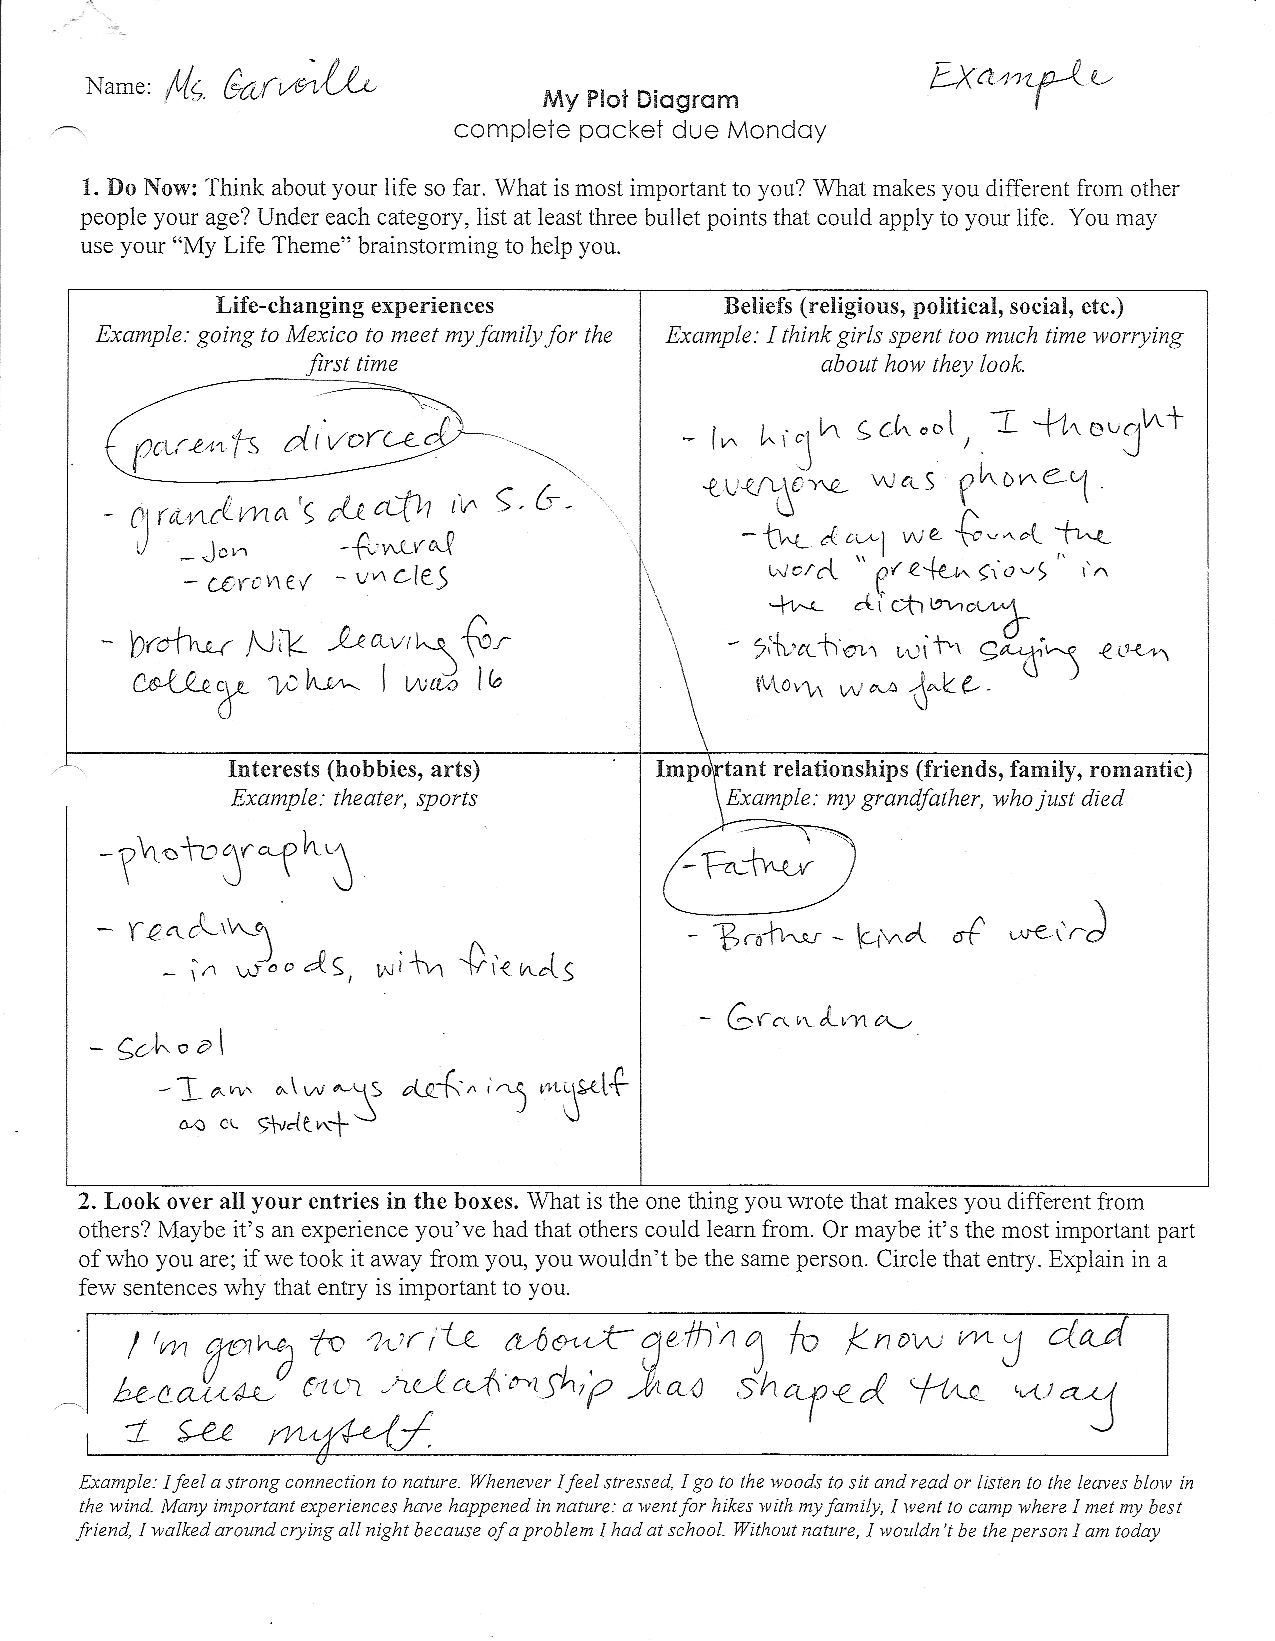 Name: Ms. Garveille
Example
My Plot Diagram
complete packet due Monday
1. Do Now: Think about your life so far. What is most important to you? What makes you different from other
people your age? Under each category, list at least three bullet points that could apply to your life. You may
use your “My Life Theme” brainstorming to help you.
Life-changing experiences
Example: going to Mexico to meet my family for the
first time
- parents divorced
- grandma's death in S.G.
- Jon - funeral
- coroner - uncles
- brother Nik leaving for
college when I was 16
Beliefs (religious, political, social, etc.)
Example: I think girls spent too much time worrying
about how they look.
- In high school, I thought
everyone was phoney.
- the day we found the
word "pretensious" in
the dictionary
- situation with saying even
Mom was fake.
Interests (hobbies, arts)
Example: theater, sports
- photography
- reading
- in woods, with friends
- school
- I am always defining myself
as a student
Important relationships (friends, family, romantic)
Example: my grandfather, who just died
- Father
- Brother - kind of weird
- Grandma
2. Look over all your entries in the boxes. What is the one thing you wrote that makes you different from
others? Maybe it’s an experience you’ve had that others could learn from. Or maybe it’s the most important part
of who you are; if we took it away from you, you wouldn’t be the same person. Circle that entry. Explain in a
few sentences why that entry is important to you.
I'm going to write about getting to know my dad
because our relationship has shaped the way
I see myself.
Example: I feel a strong connection to nature. Whenever I feel stressed, I go to the woods to sit and read or listen to the leaves blow in
the wind. Many important experiences have happened in nature: a went for hikes with my family, I went to camp where I met my best
friend, I walked around crying all night because of a problem I had at school. Without nature, I wouldn’t be the person I am today